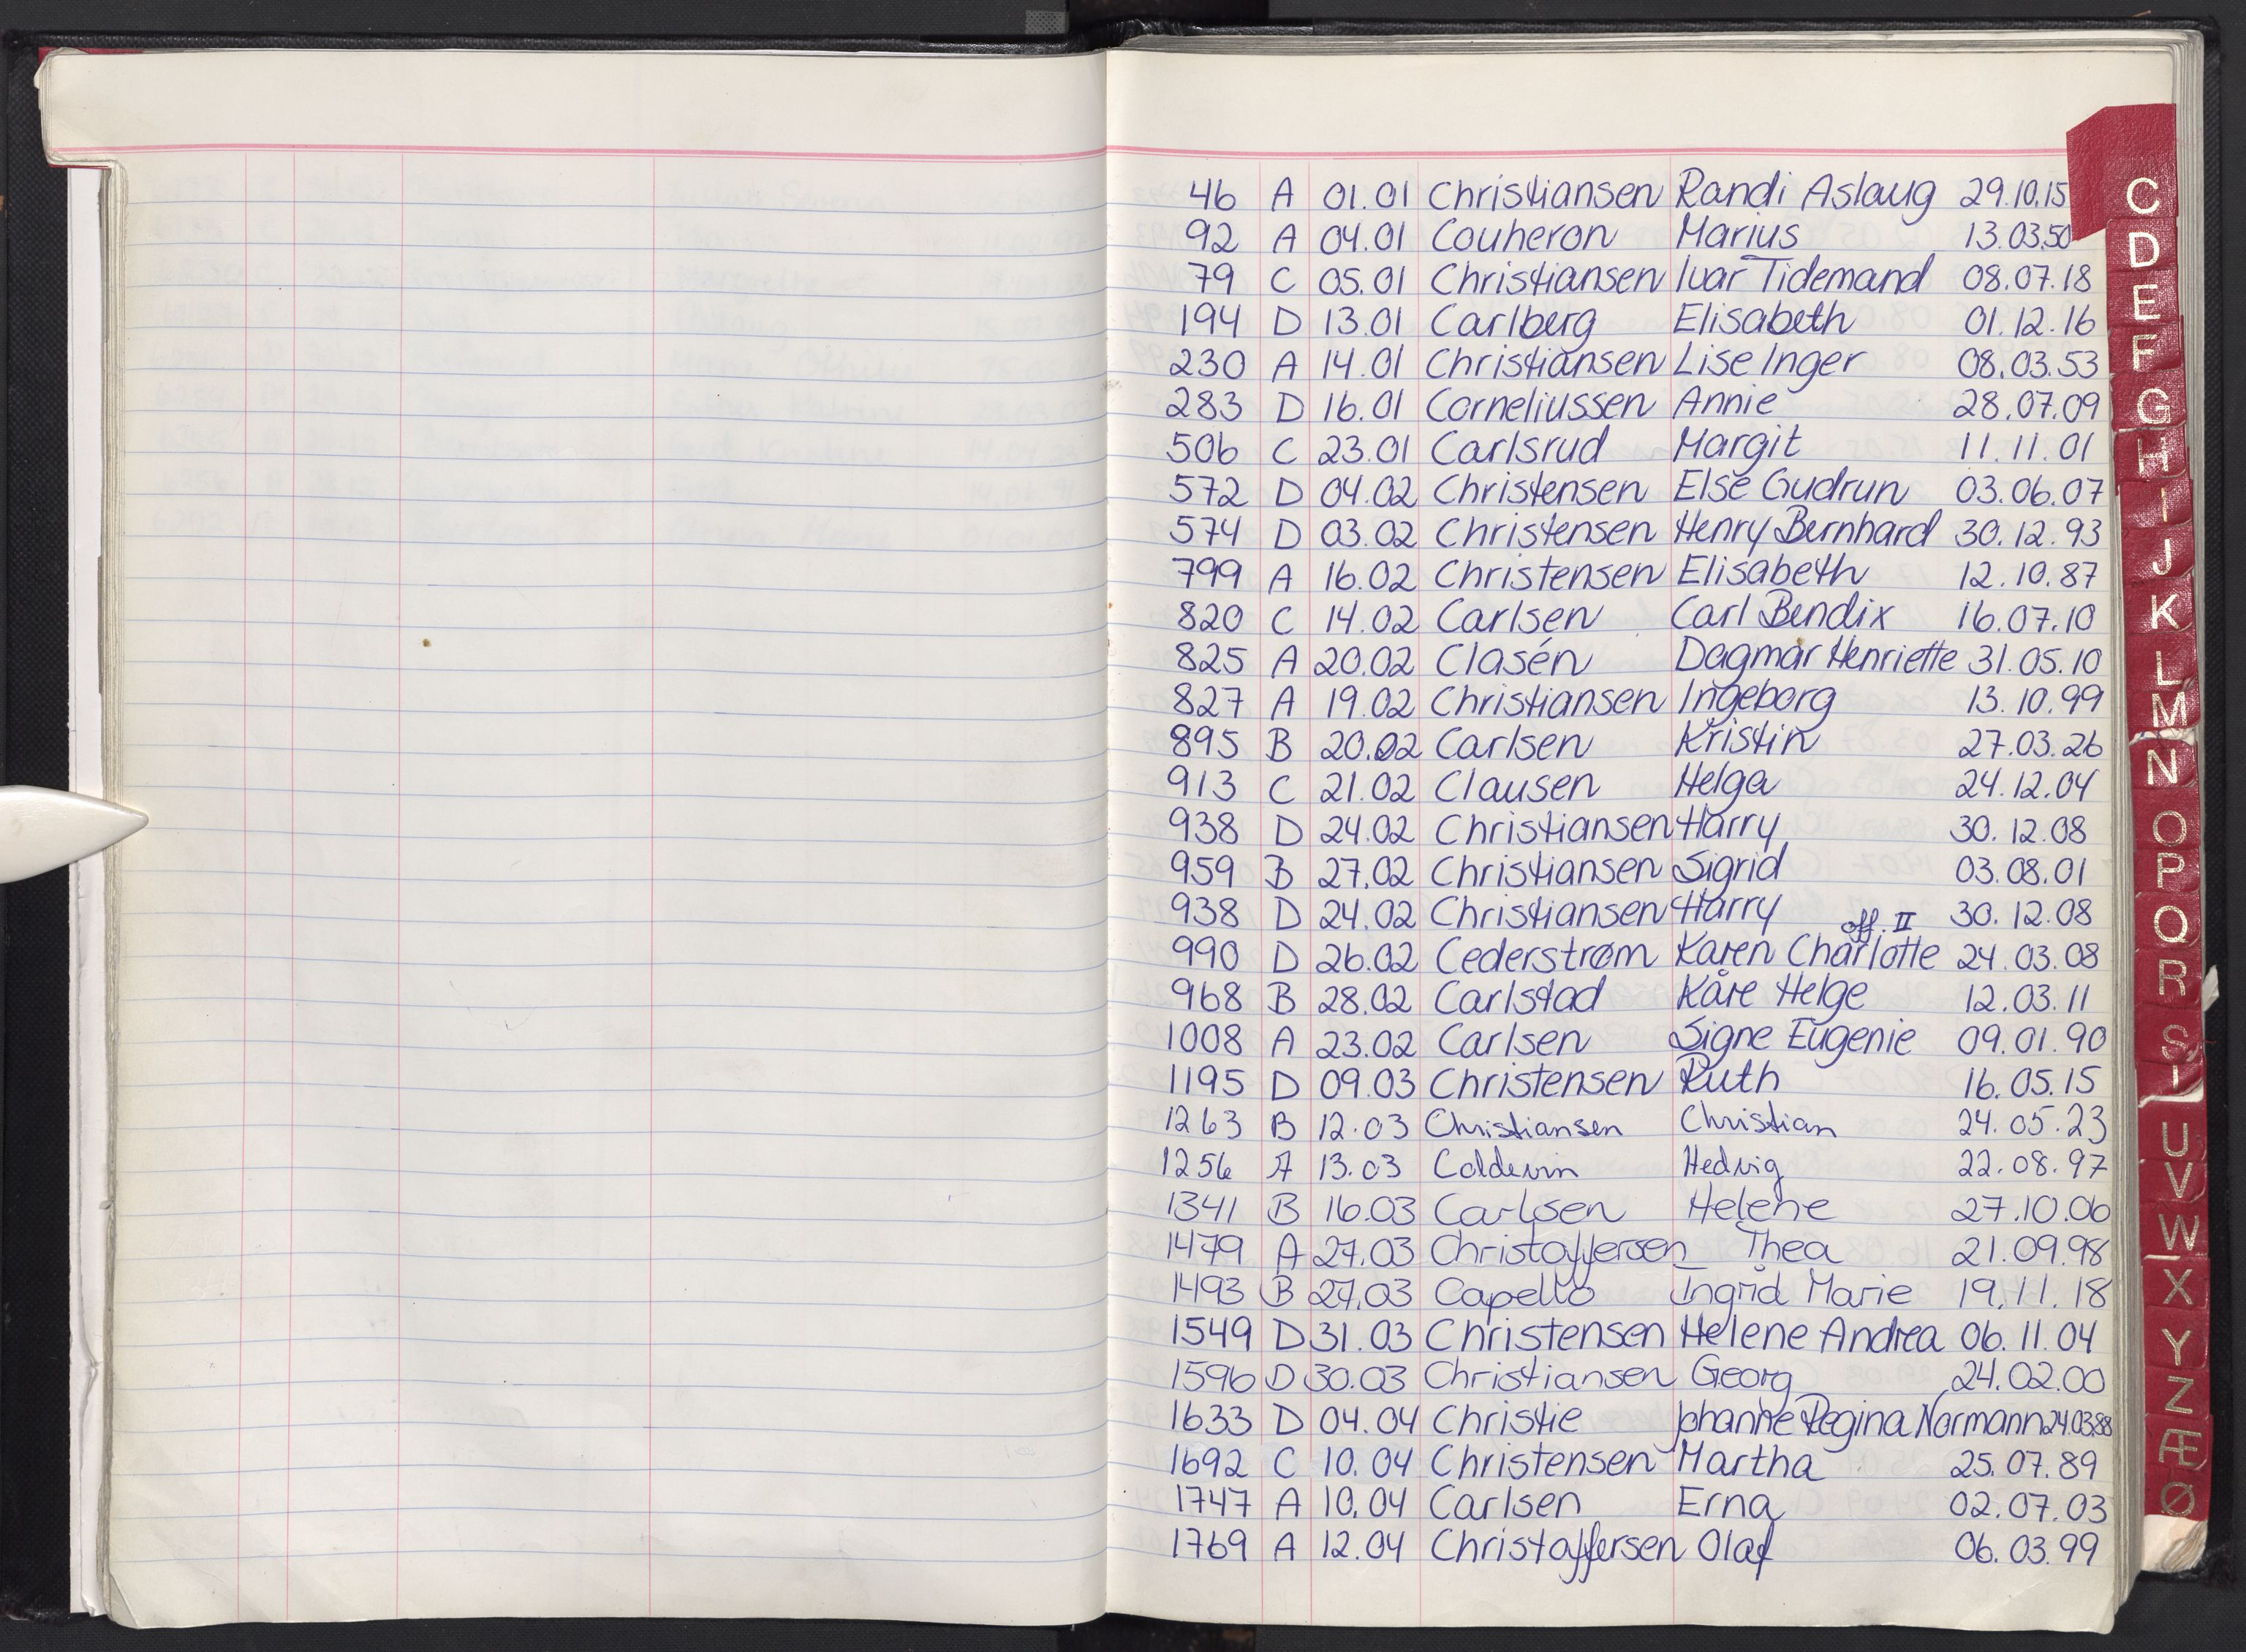 46 A 01.01 Christiansen Randi Aslaug 29.10.15
92 A 04.01 Couheron Marius 13.03.50
79 C 05.01 Christiansen Ivar Tidemand 08.07.18
194 D 13.01 Carlberg Elisabeth 01.12.16
230 A 14.01 Christiansen Lise Inger 08.03.53
283 D 16.01 Corneliussen Annie 28.07.09
506 C 23.01 Carlsrud Margit 11.11.01
572 D 04.02 Christensen Else Gudrun 03.06.07
574 D 03.02 Christensen Henry Bernhard 30.12.93
799 A 16.02 Christensen Elisabeth 12.10.87
820 C 14.02 Carlsen Carl Bendix 16.07.10
825 A 20.02 Clasén Dagmar Henriette 31.05.10
827 A 19.02 Christiansen Ingeborg 13.10.99
895 B 20.02 Carlsen Kristin 27.03.26
913 C 21.02 Clausen Helga 24.12.04
938 D 24.02 Christiansen Harry 30.12.08
959 B 27.02 Christiansen Sigrid 03.08.01
938 D 24.02 Christiansen Harry off. II 30.12.08
990 D 26.02 Cederstrøm Karen Charlotte 24.03.08
968 B 28.02 Carlstad Kåre Helge 12.03.11
1008 A 23.02 Carlsen Signe Eugenie 09.01.90
1195 D 09.03 Christensen Ruth 16.05.15
1263 B 12.03 Christiansen Christian 24.05.23
1256 A 13.03 Coldevin Hedvig 22.08.97
1341 B 16.03 Carlsen Helene 27.10.06
1479 A 27.03 Christoffersen Thea 21.09.98
1493 B 27.03 Capello Ingrid Marie 19.11.18
1549 D 31.03 Christensen Helene Andrea 06.11.04
1596 D 30.03 Christiansen Georg 24.02.00
1633 D 04.04 Christie Johanne Regina Normann 24.03.88
1692 C 10.04 Christensen Martha 25.07.89
1747 A 10.04 Carlsen Erna 02.07.03
1769 A 12.04 Christoffersen Olaf 06.03.99
C
D
E
F
G
H
I
J
K
L
M
N
O
P
Q
R
S
T
U
V
W
X
Y
Z
Æ
Ø